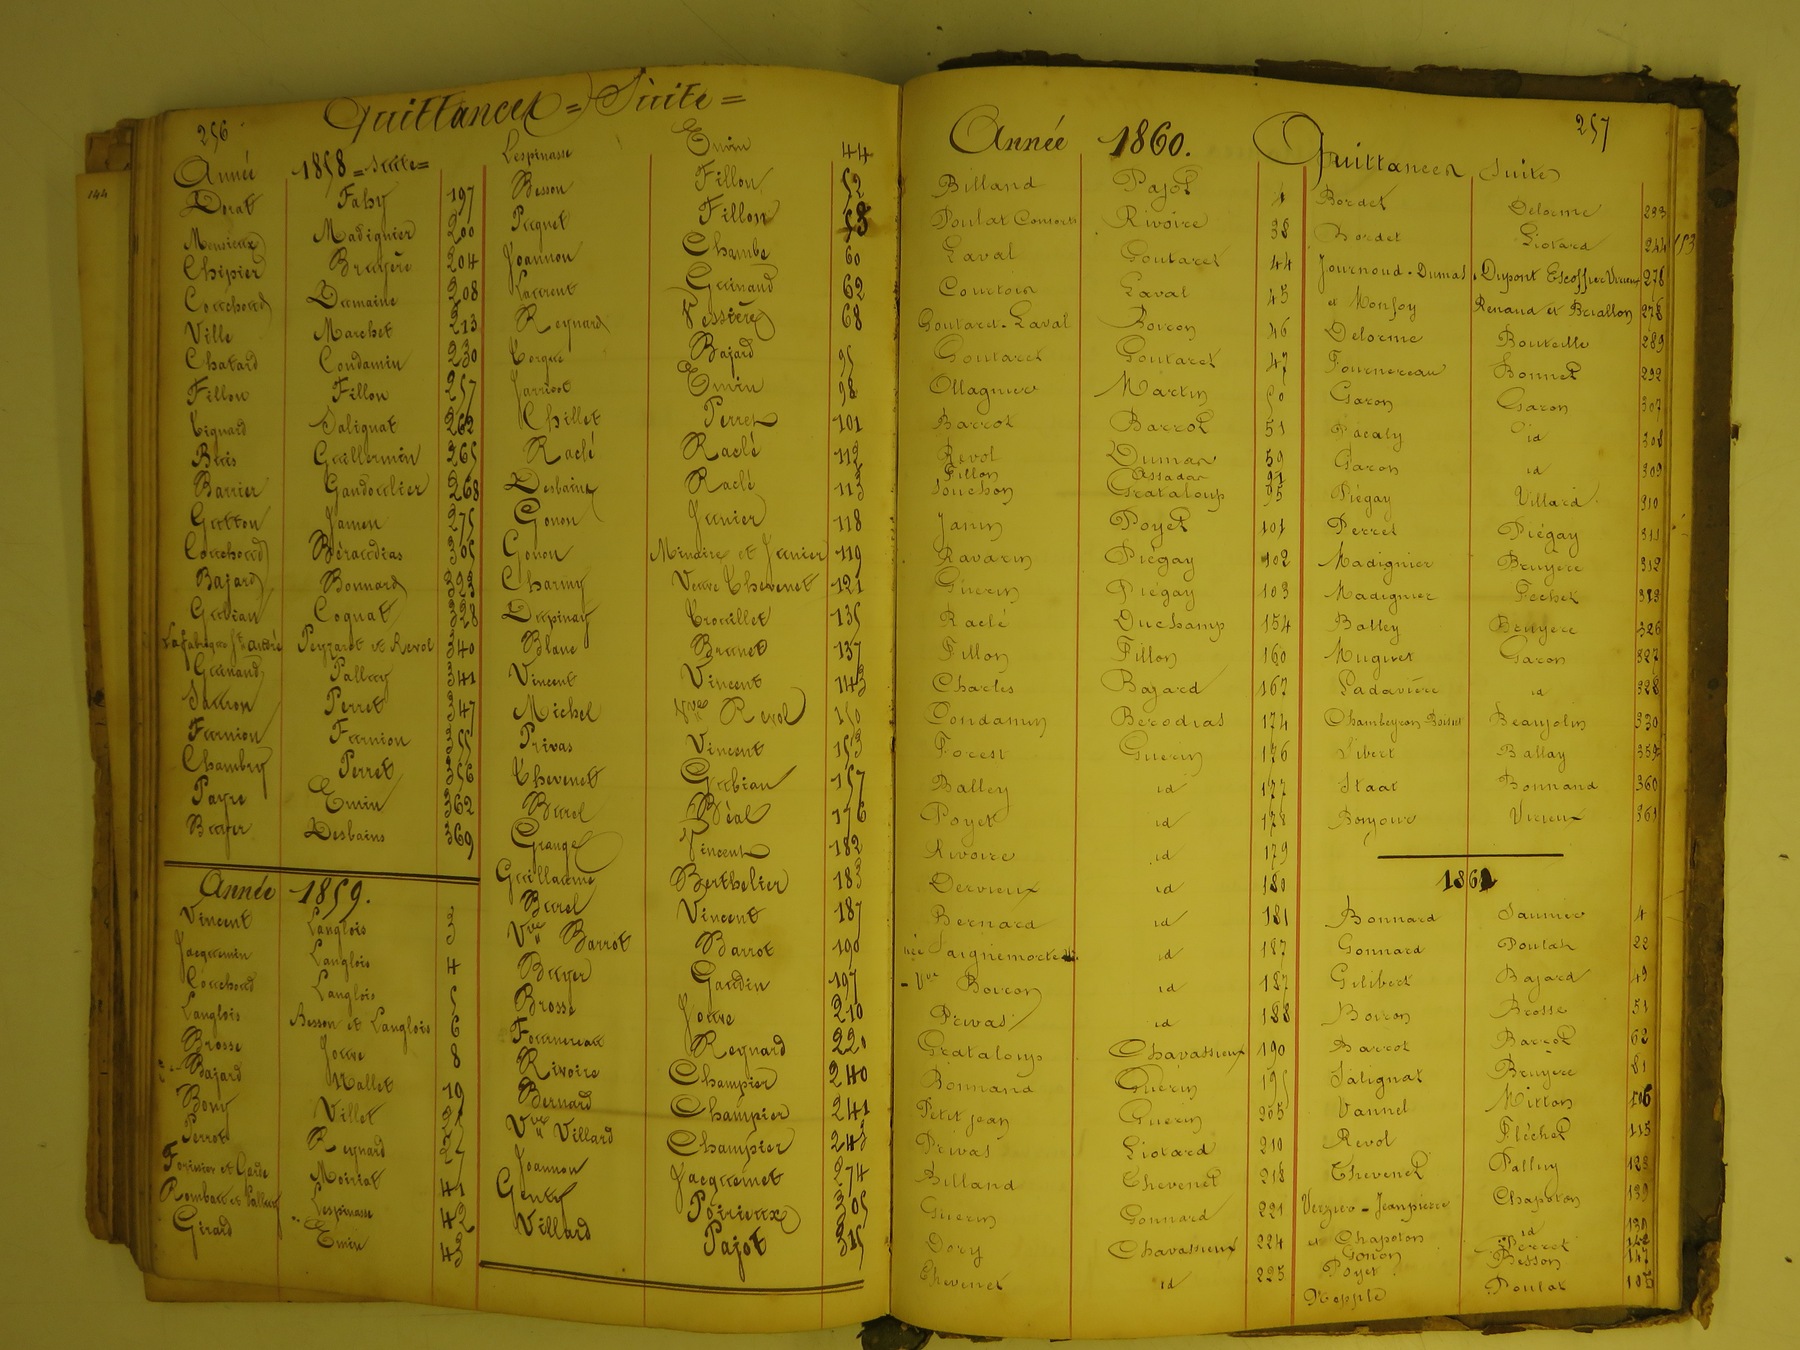 256
Quittances = Suite =
Année 1858 = suite =
Dorat Fahy 197
Madignier 200
Chipier Bruyère 204
Couchoud Dumaine 208
Ville Marchet 213
Chatard Condamin 230
Fillon Fillon 257
Vignard Salignat 262
Buis Guillermin 265
Barrier Gaudouslier 268
Gutton Jamen 275
Couchoud Béraudias 305
Bajard Bonnard 323
Gubian Coquat 328
Peyzaret et Revol 340
Guinand Palluy 341
Perret 347
Furnion Furnion 355
Chambry Perret 356
Payre Emin 362
Buyer Desbains 369
Année 1859.
Vincent Langlois 3
Jacquemin Langlois 4
Couchoud Langlois 5
Langlois Besson et Langlois 6
Brosse Jouve 8
Bajard Mallet 19
Bony Villet
Perrot Reynard
Moiriat 41
Lespinasse 42
Girard Emin 43
Lespinasse Emin 44
Besson Fillon 52
Picquet Fillon 58
Joannon Chambe 60
Laurent Guinaud 62
Reynard Vessière 68
Bajard 95
Jarricot Emin 98
Chillet Perret 101
Raclé Raclé 112
Desbains Raclé 113
Gonon Junier 118
Gonon Minaire et Junier 119
Charmy Veuve Thevenet 121
Dupinay Trouillet 135
Blanc Brunet 137
Vincent Vincent 143
Michel Vve Revol 150
Privas Vincent 153
Thevenet Gubian 157
Burel Béal 176
Grange Vincent 182
Guillaume Berthelier 183
Burel Vincent 187
Vve Barrot Barrot 190
Buyer Gaudin 197
Brosse Jouve 210
Fournereau Reynard 220
Rivoire Champier 240
Bernard Champier 241
Vve Villard Champier 243
Joannon Jacquemet 274
Genty Poirieux 305
Villard Pajot 315
257
Année 1860. Quittances Suite
Billand Pajot 1
Poulat Consorts Rivoire 38
Laval Goutaret 44
Courtois Laval 45
Goutard-Laval Boiron 46
Goutaret Goutaret 47
Ollagnier Martin 50
Barrot Barrot 51
Revol Dumas 59
Fillon Assadas 91
Souchon Grataloup 95
Janin Poyet 101
Ravarin Piégay 102
Guerin Piégay 103
Raclé Duchamp 154
Fillon Fillon 160
Charles Bajard 167
Condamin Berodias 174
Forest Guerin 176
Balley id 177
Poyet id 178
Rivoire id 179
Dervieux id 180
Bernard id 181
née Saignemorte id 187
Vve Boiron id 187
Privas id 188
Grataloup Chavassieux 190
Bonnand Guerin 195
Petit jean Guerin 205
Privas Liotard 210
Billand Thevenet 218
Guerin Gonnard 221
Dory Chavassieux 224
Thevenet id 225
Bordet Delorme 233
Bordet Liotard 244
Journoud-Dumas, Dupont Escoffier Virieux 278
et Monfoy Renaud et Briallon 278
Delorme Bouteille 289
Fournereau Bonnet 292
Garon Garon 307
Pécaly id 308
Garon id 309
Piégay Villard 310
Perret Piégay 311
Madignier Bruyère 312
Madignier Pechet 313
Balley Bruyère 326
Muguet Garon 327
Padavière id 328
Chambeyron Beaujolin 330
Sibert Ballay 359
Staat Bonnand 360
Bonjour Virieux 361
1861
Bonnard Saunier 4
Gonnard Poulat 22
Gilibert Bajard 49
Boiron Brosse 51
Barrot Barrot 62
Salignat Bruyère 81
Vannel Mitton 106
Revol Fléchet 115
Thevenet Palluy 128
Verzier-Jeanpierre Chapoton 139
et Chapoton id 139
Gonon Perret
Poyet Besson 147
Poulat
144